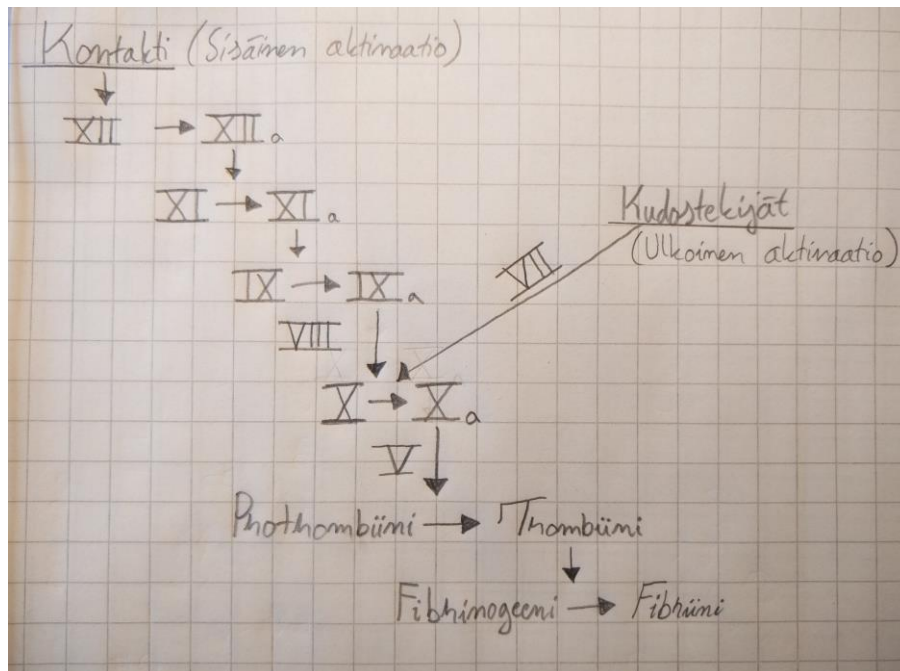 Kontakti (Sisäinen aktivaatio)
XII → XIIa
XI → XIa
Kudostekijät
(Ulkoinen aktivaatio)
IX → IXa
VII
VIII
X → Xa
V
Prothombiini → Thombiini
Fibrinogeeni → Fibriini